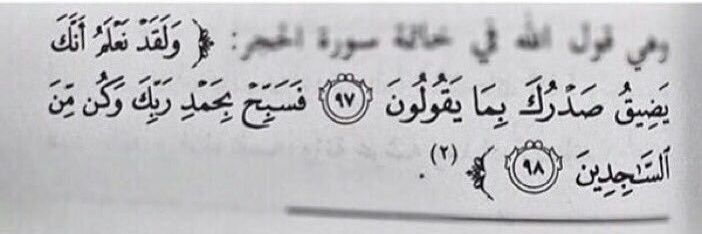 وهي قول الله في خاتمة سورة الحجر: ﴿ وَلَقَدْ نَعْلَمُ أَنَّكَ
يَضِيقُ صَدْرُكَ بِمَا يَقُولُونَ ۝٩٧ فَسَبِّحْ بِحَمْدِ رَبِّكَ وَكُن مِّنَ
ٱلسَّـٰجِدِينَ ۝٩٨ ﴾ (٢) .